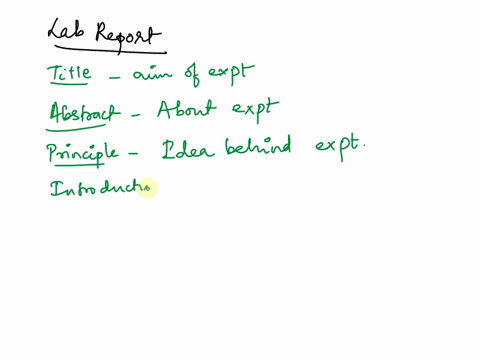 Lab Report
Title - aim of expt
Abstract - About expt
Principle - Idea behind expt.
Introductio